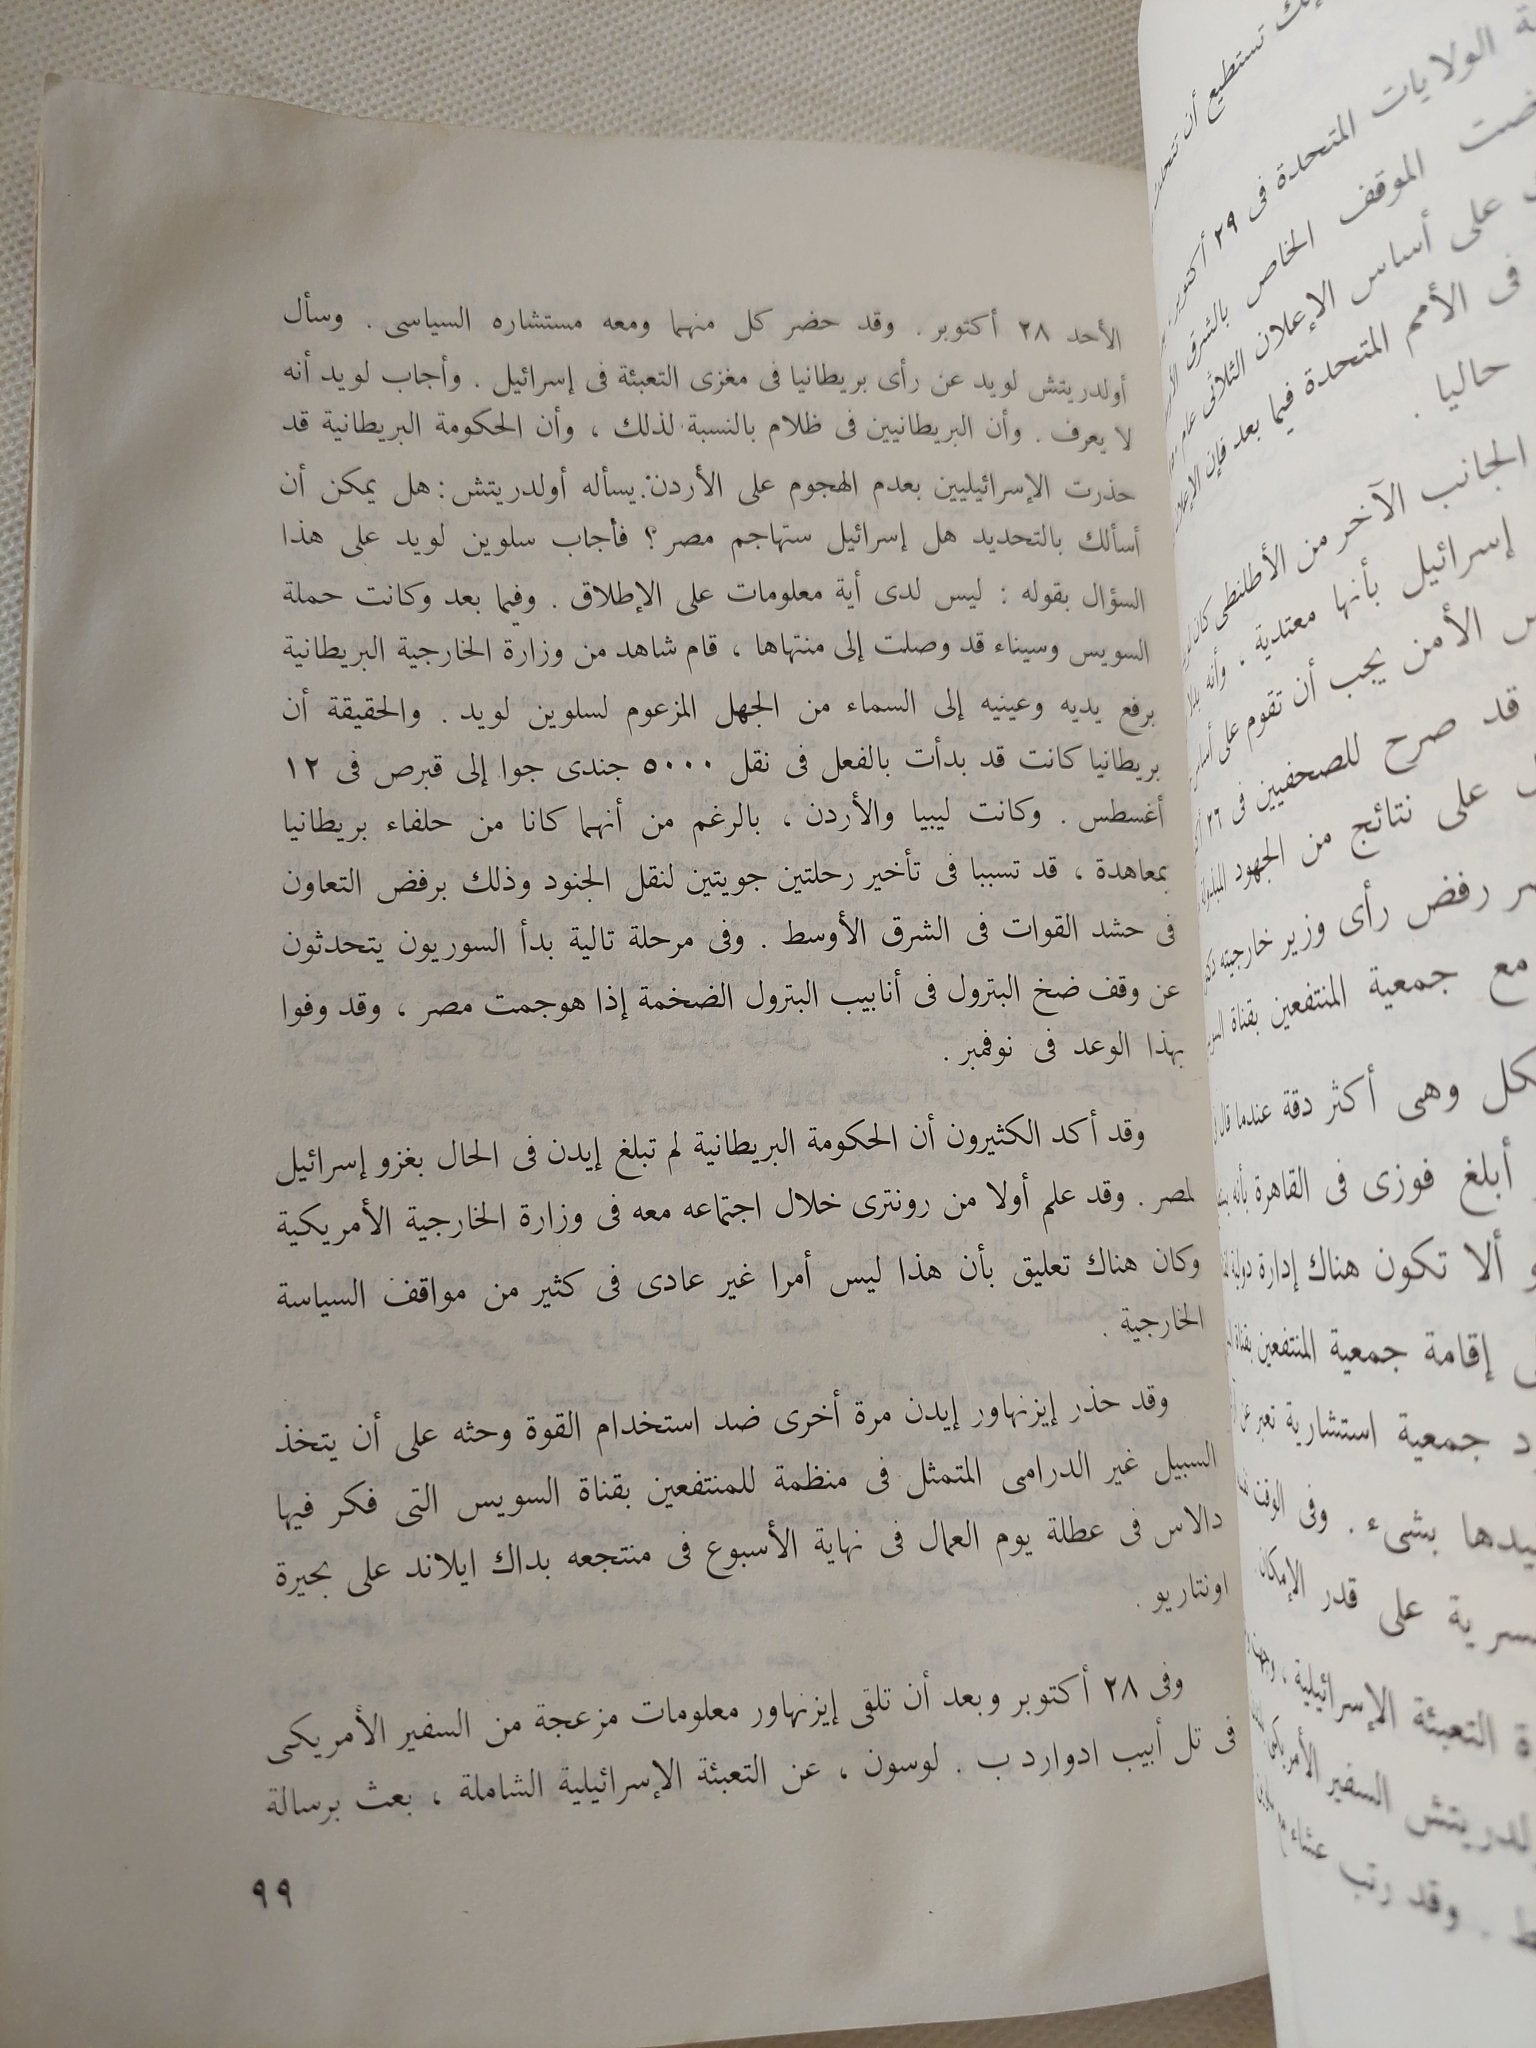 الأحد ٢٨ أكتوبر . وقد حضر كل منهما ومعه مستشاره السياسى . وسأل
أولدريتش لويد عن رأى بريطانيا فى مغزى التعبئة فى إسرائيل . وأجاب لويد أنه
لا يعرف . وأن البريطانيين فى ظلام بالنسبة لذلك ، وأن الحكومة البريطانية قد
حذرت الإسرائيليين بعدم الهجوم على الأردن . يسأله أولدريتش : هل يمكن أن
أسألك بالتحديد هل إسرائيل ستهاجم مصر ؟ فأجاب سلوين لويد على هذا
السؤال بقوله : ليس لدى أية معلومات على الإطلاق . وفيما بعد وكانت حملة
السويس وسيناء قد وصلت إلى منتهاها ، قام شاهد من وزارة الخارجية البريطانية
برفع يديه وعينيه إلى السماء من الجهل المزعوم لسلوين لويد . والحقيقة أن
بريطانيا كانت قد بدأت بالفعل فى نقل ٥٠٠٠ جندى جوا إلى قبرص فى ١٢
أغسطس . وكانت ليبيا والأردن ، بالرغم من أنهما كانا من حلفاء بريطانيا
بمعاهدة ، قد تسببا فى تأخير رحلتين جويتين لنقل الجنود وذلك برفض التعاون
فى حشد القوات فى الشرق الأوسط . وفى مرحلة تالية بدأ السوريون يتحدثون
عن وقف ضخ البترول فى أنابيب البترول الضخمة إذا هوجمت مصر ، وقد وفوا
بهذا الوعد فى نوفمبر .
وقد أكد الكثيرون أن الحكومة البريطانية لم تبلغ إيدن فى الحال بغزو إسرائيل
لمصر . وقد علم أولا من رونترى خلال اجتماعه معه فى وزارة الخارجية الأمريكية
وكان هناك تعليق بأن هذا ليس أمرا غير عادى فى كثير من مواقف السياسة
الخارجية .
وقد حذر إيزنهاور إيدن مرة أخرى ضد استخدام القوة وحثه على أن يتخذ
السبيل غير الدرامى المتمثل فى منظمة للمنتفعين بقناة السويس التى فكر فيها
دالاس فى عطلة يوم العمال فى نهاية الأسبوع فى منتجعه بداك ايلاند على بحيرة
اونتاريو .
وفى ٢٨ أكتوبر وبعد أن تلقى إيزنهاور معلومات مزعجة من السفير الأمريكى
فى تل أبيب ادوارد ب . لوسون ، عن التعبئة الإسرائيلية الشاملة ، بعث برسالة
٩٩
تستطيع أن
الولايات المتحدة فى ٢٩ أكتوبر
الموقف الخاص بالشرق
على أساس الإعلان الثلاثى عام
فى الأمم المتحدة فيما بعد فإن
حاليا .
الجانب الآخر من الأطلنطى
إسرائيل بأنها معتدية ، وأنه
الأمن يجب أن تقوم على
قد صرح للصحفيين فى ٢٦
على نتائج من الجهود
رفض رأى وزير خارجيته
مع جمعية المنتفعين بقناة
وهى أكثر دقة عندما قال
أبلغ فوزى فى القاهرة بأنه
ألا تكون هناك إدارة دولية
إقامة جمعية المنتفعين بقناة
جمعية استشارية تعبر عن
بشىء . وفى الوقت
على قدر الإمكان
التعبئة الإسرائيلية ،
السفير
. وقد رتب عشاء